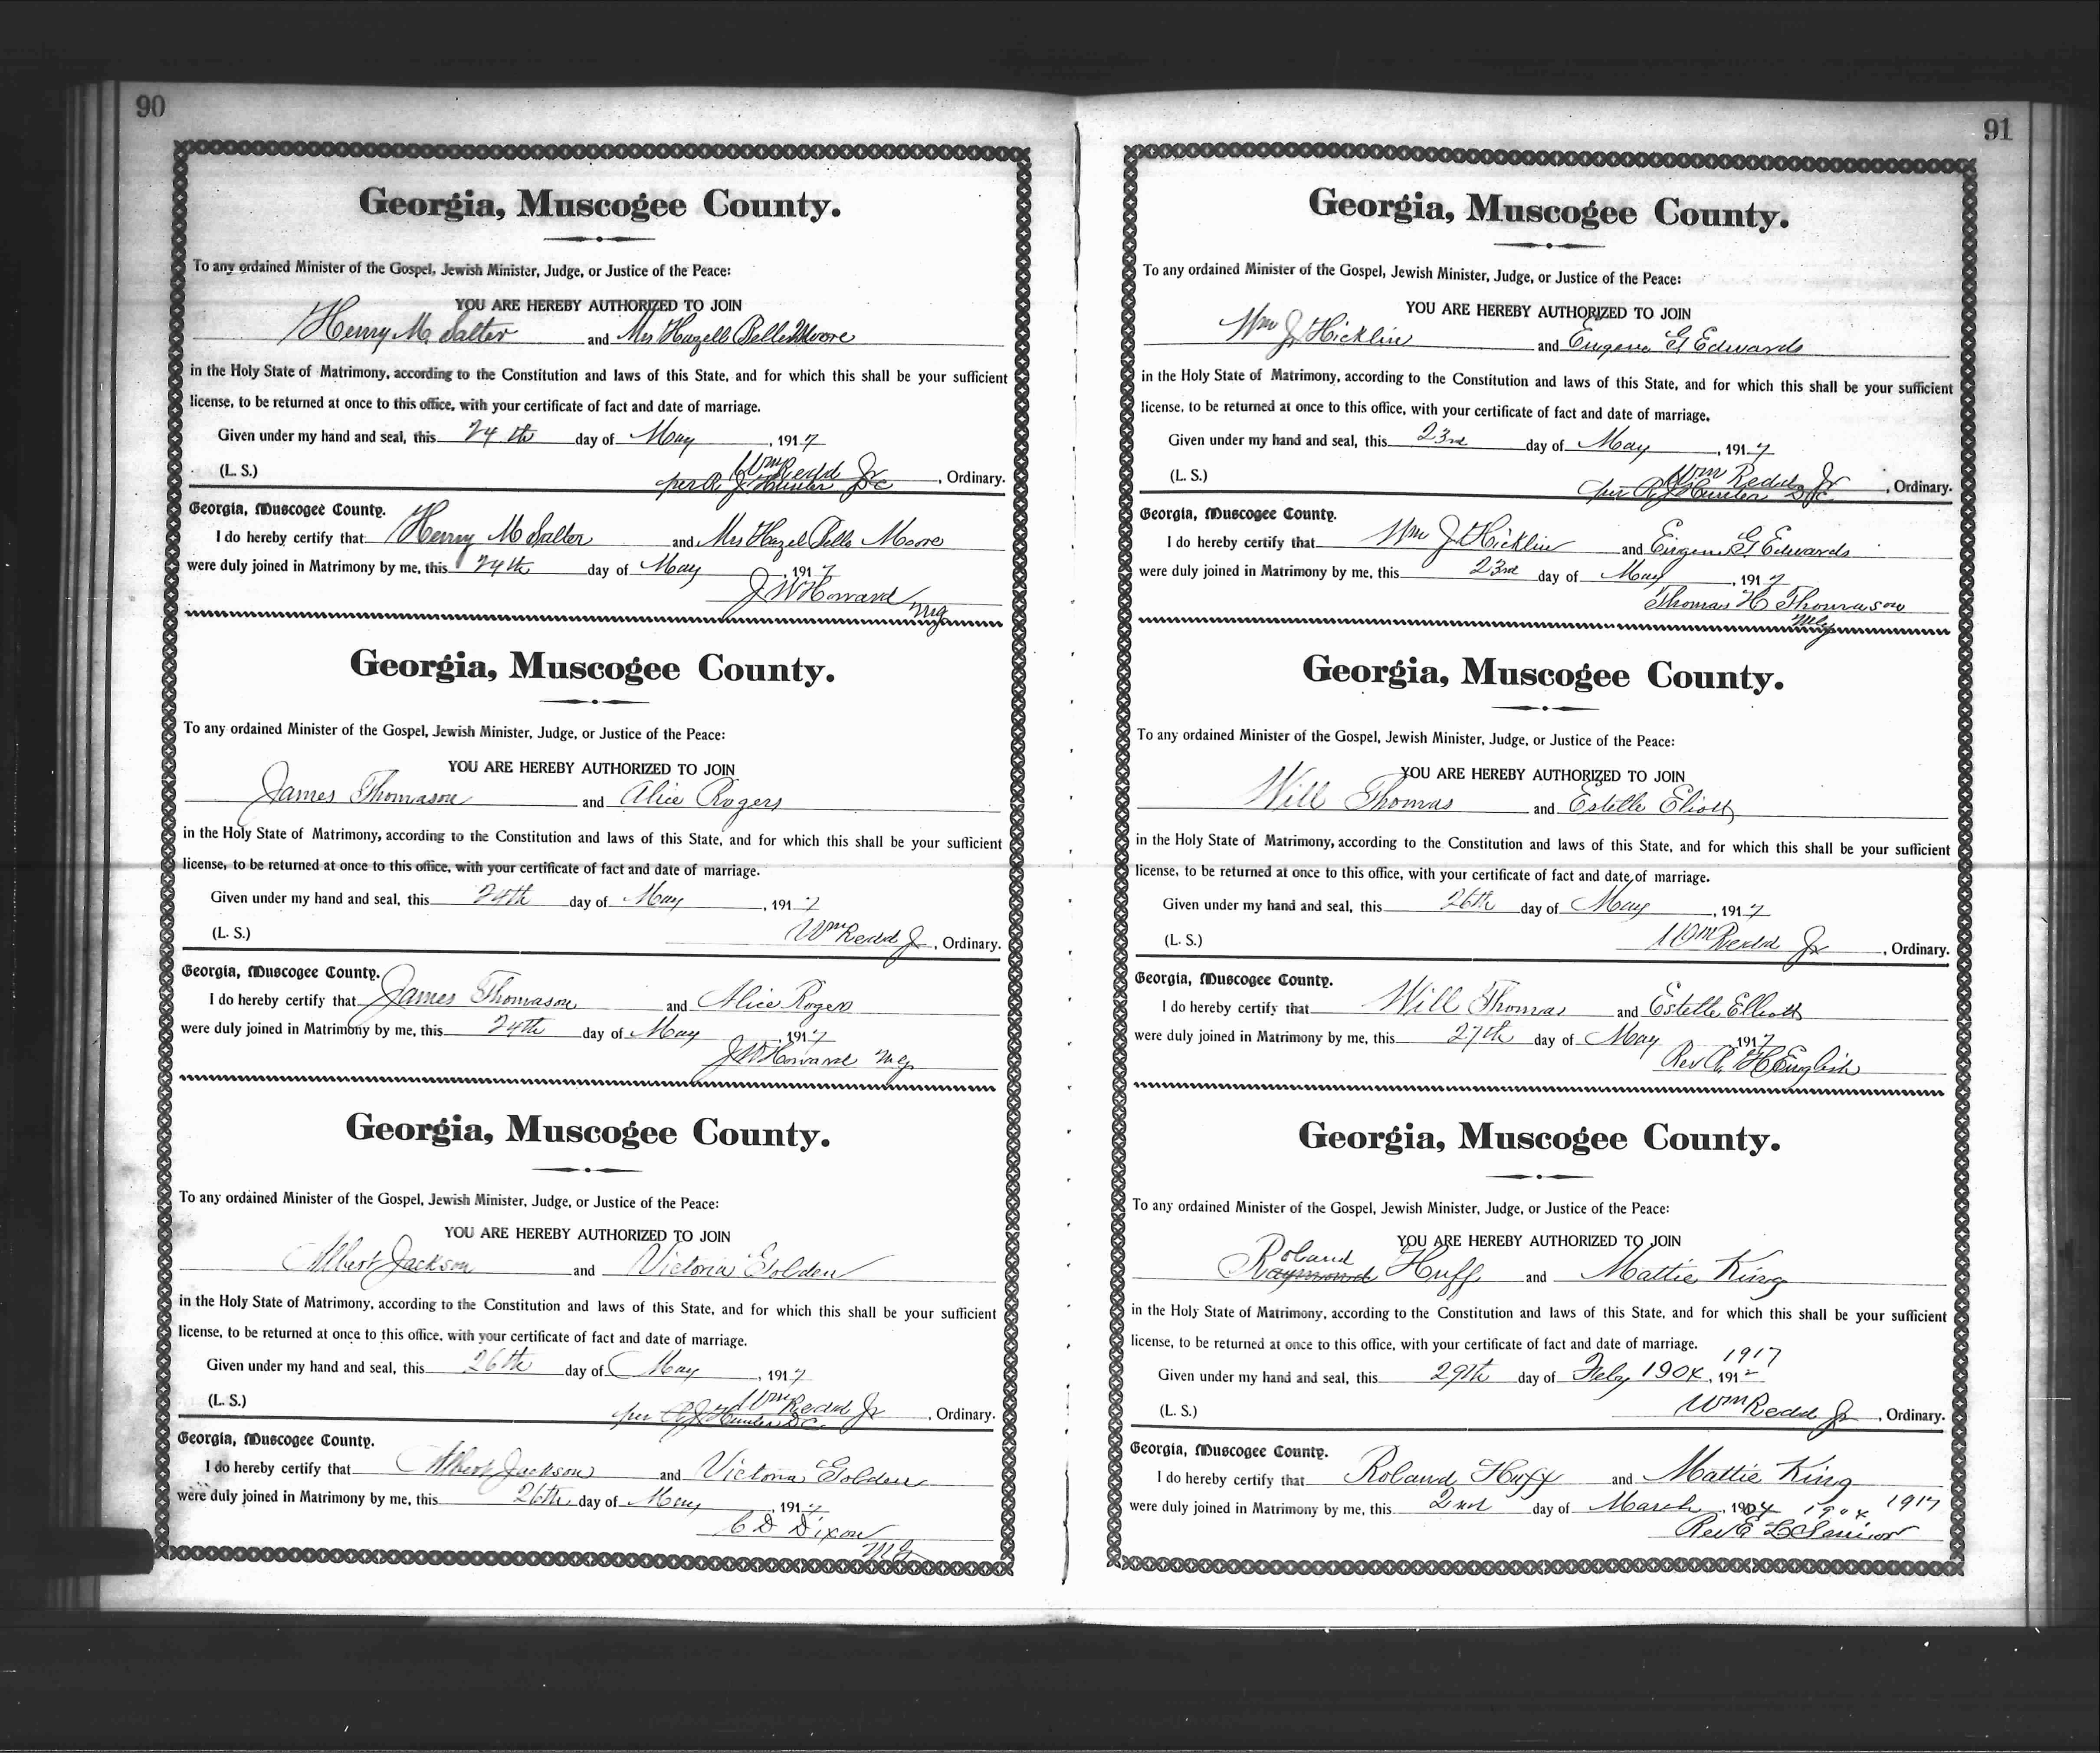 90
Georgia, Muscogee County.
To any ordained Minister of the Gospel, Jewish Minister, Judge, or Justice of the Peace:
YOU ARE HEREBY AUTHORIZED TO JOIN
Henry M. Salter and Mrs Hazell Belle Moore
in the Holy State of Matrimony, according to the Constitution and laws of this State, and for which this shall be your sufficient
license, to be returned at once to this office, with your certificate of fact and date of marriage.
Given under my hand and seal, this 24th day of May, 1917
(L. S.) Wm Redd Jr, Ordinary.
per R J Hunter DC
Georgia, Muscogee County.
I do hereby certify that Henry M Salter and Mrs Hazel Belle Moore
were duly joined in Matrimony by me, this 24th day of May, 1917
J W Howard
mg
Georgia, Muscogee County.
To any ordained Minister of the Gospel, Jewish Minister, Judge, or Justice of the Peace:
YOU ARE HEREBY AUTHORIZED TO JOIN
James Thomason and Alice Rogers
in the Holy State of Matrimony, according to the Constitution and laws of this State, and for which this shall be your sufficient
license, to be returned at once to this office, with your certificate of fact and date of marriage.
Given under my hand and seal, this 24th day of May, 1917
(L. S.) Wm Redd Jr, Ordinary.
Georgia, Muscogee County.
I do hereby certify that James Thomason and Alice Rogers
were duly joined in Matrimony by me, this 24th day of May, 1917
J W Howard mg
Georgia, Muscogee County.
To any ordained Minister of the Gospel, Jewish Minister, Judge, or Justice of the Peace:
YOU ARE HEREBY AUTHORIZED TO JOIN
Albert Jackson and Victoria Golden
in the Holy State of Matrimony, according to the Constitution and laws of this State, and for which this shall be your sufficient
license, to be returned at once to this office, with your certificate of fact and date of marriage.
Given under my hand and seal, this 26th day of May, 1917
(L. S.) Wm Redd Jr, Ordinary.
per R J Hunter DC
Georgia, Muscogee County.
I do hereby certify that Albert Jackson and Victoria Golden
were duly joined in Matrimony by me, this 26th day of May, 1917
C D Dixon
MG
91
Georgia, Muscogee County.
To any ordained Minister of the Gospel, Jewish Minister, Judge, or Justice of the Peace:
YOU ARE HEREBY AUTHORIZED TO JOIN
Wm J Hicklin and Eugene G Edwards
in the Holy State of Matrimony, according to the Constitution and laws of this State, and for which this shall be your sufficient
license, to be returned at once to this office, with your certificate of fact and date of marriage.
Given under my hand and seal, this 23rd day of May, 1917
(L. S.) Wm Redd Jr, Ordinary.
per R J Hunter DC
Georgia, Muscogee County.
I do hereby certify that Wm J Hicklin and Eugene G Edwards
were duly joined in Matrimony by me, this 23rd day of May, 1917
Thomas H Thomason
Georgia, Muscogee County.
To any ordained Minister of the Gospel, Jewish Minister, Judge, or Justice of the Peace:
YOU ARE HEREBY AUTHORIZED TO JOIN
Will Thomas and Estelle Eliott
in the Holy State of Matrimony, according to the Constitution and laws of this State, and for which this shall be your sufficient
license, to be returned at once to this office, with your certificate of fact and date of marriage.
Given under my hand and seal, this 26th day of May, 1917
(L. S.) Wm Redd Jr, Ordinary.
Georgia, Muscogee County.
I do hereby certify that Will Thomas and Estelle Elliott
were duly joined in Matrimony by me, this 27th day of May, 1917
Rev R H English
Georgia, Muscogee County.
To any ordained Minister of the Gospel, Jewish Minister, Judge, or Justice of the Peace:
YOU ARE HEREBY AUTHORIZED TO JOIN
Roland
Raymond Huff and Mattie King
in the Holy State of Matrimony, according to the Constitution and laws of this State, and for which this shall be your sufficient
license, to be returned at once to this office, with your certificate of fact and date of marriage.
1917
Given under my hand and seal, this 29th day of Feby 1904, 191
(L. S.) Wm Redd Jr, Ordinary.
Georgia, Muscogee County.
I do hereby certify that Roland Huff and Mattie King
were duly joined in Matrimony by me, this 2nd day of March, 1904 1904 1917
Rev E L Senior